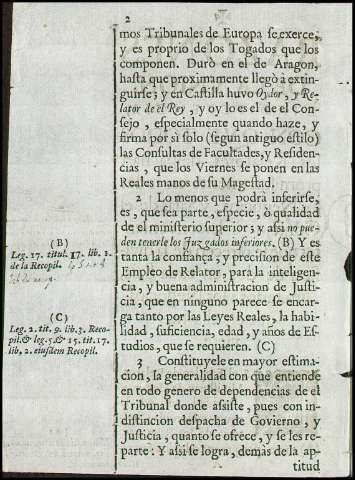 2
mos Tribunales de Europa se exerce,
y es proprio de los Togados que los
componen. Durò en el de Aragon,
hasta que proximamente llegò à extin-
guirse; y en Castilla huvo Oydor, y Re-
lator de el Rey, y oy lo es el de el Con-
sejo, especialmente quando haze, y
firma por sì solo (segun antiguo estilo)
las Consultas de Facultades, y Residen-
cias, que los Viernes se ponen en las
Reales manos de su Magestad.
2 Lo menos que podrà inferirse,
es, que sea parte, especie, ò qualidad
de el ministerio superior; y assi no pue-
den tenerle los Juzgados inferiores. (B) Y es
tanta la confiança, y precision de este
Empleo de Relator, para la inteligen-
cia, y buena administracion de Justi-
cia, que en ninguno parece se encar-
ga tanto por las Leyes Reales, la habi-
lidad, suficiencia, edad, y años de Es-
tudios, que se requieren. (C)
3 Constituyele en mayor estima-
cion, la generalidad con que entiende
en todo genero de dependencias de el
Tribunal donde assiste, pues con in-
distincion despacha de Govierno, y
Justicia, quanto se ofrece, y se les re-
parte: Y assi se logra, demàs de la ap-
titud
(B)
Leg. 17. titul. 17. lib. 2.
de la Recopil.
(C)
Leg. 2. tit. 9. lib. 3. Reco-
pil. & leg. 5. & 15. tit. 17.
lib. 2. eiusdem Recopil.